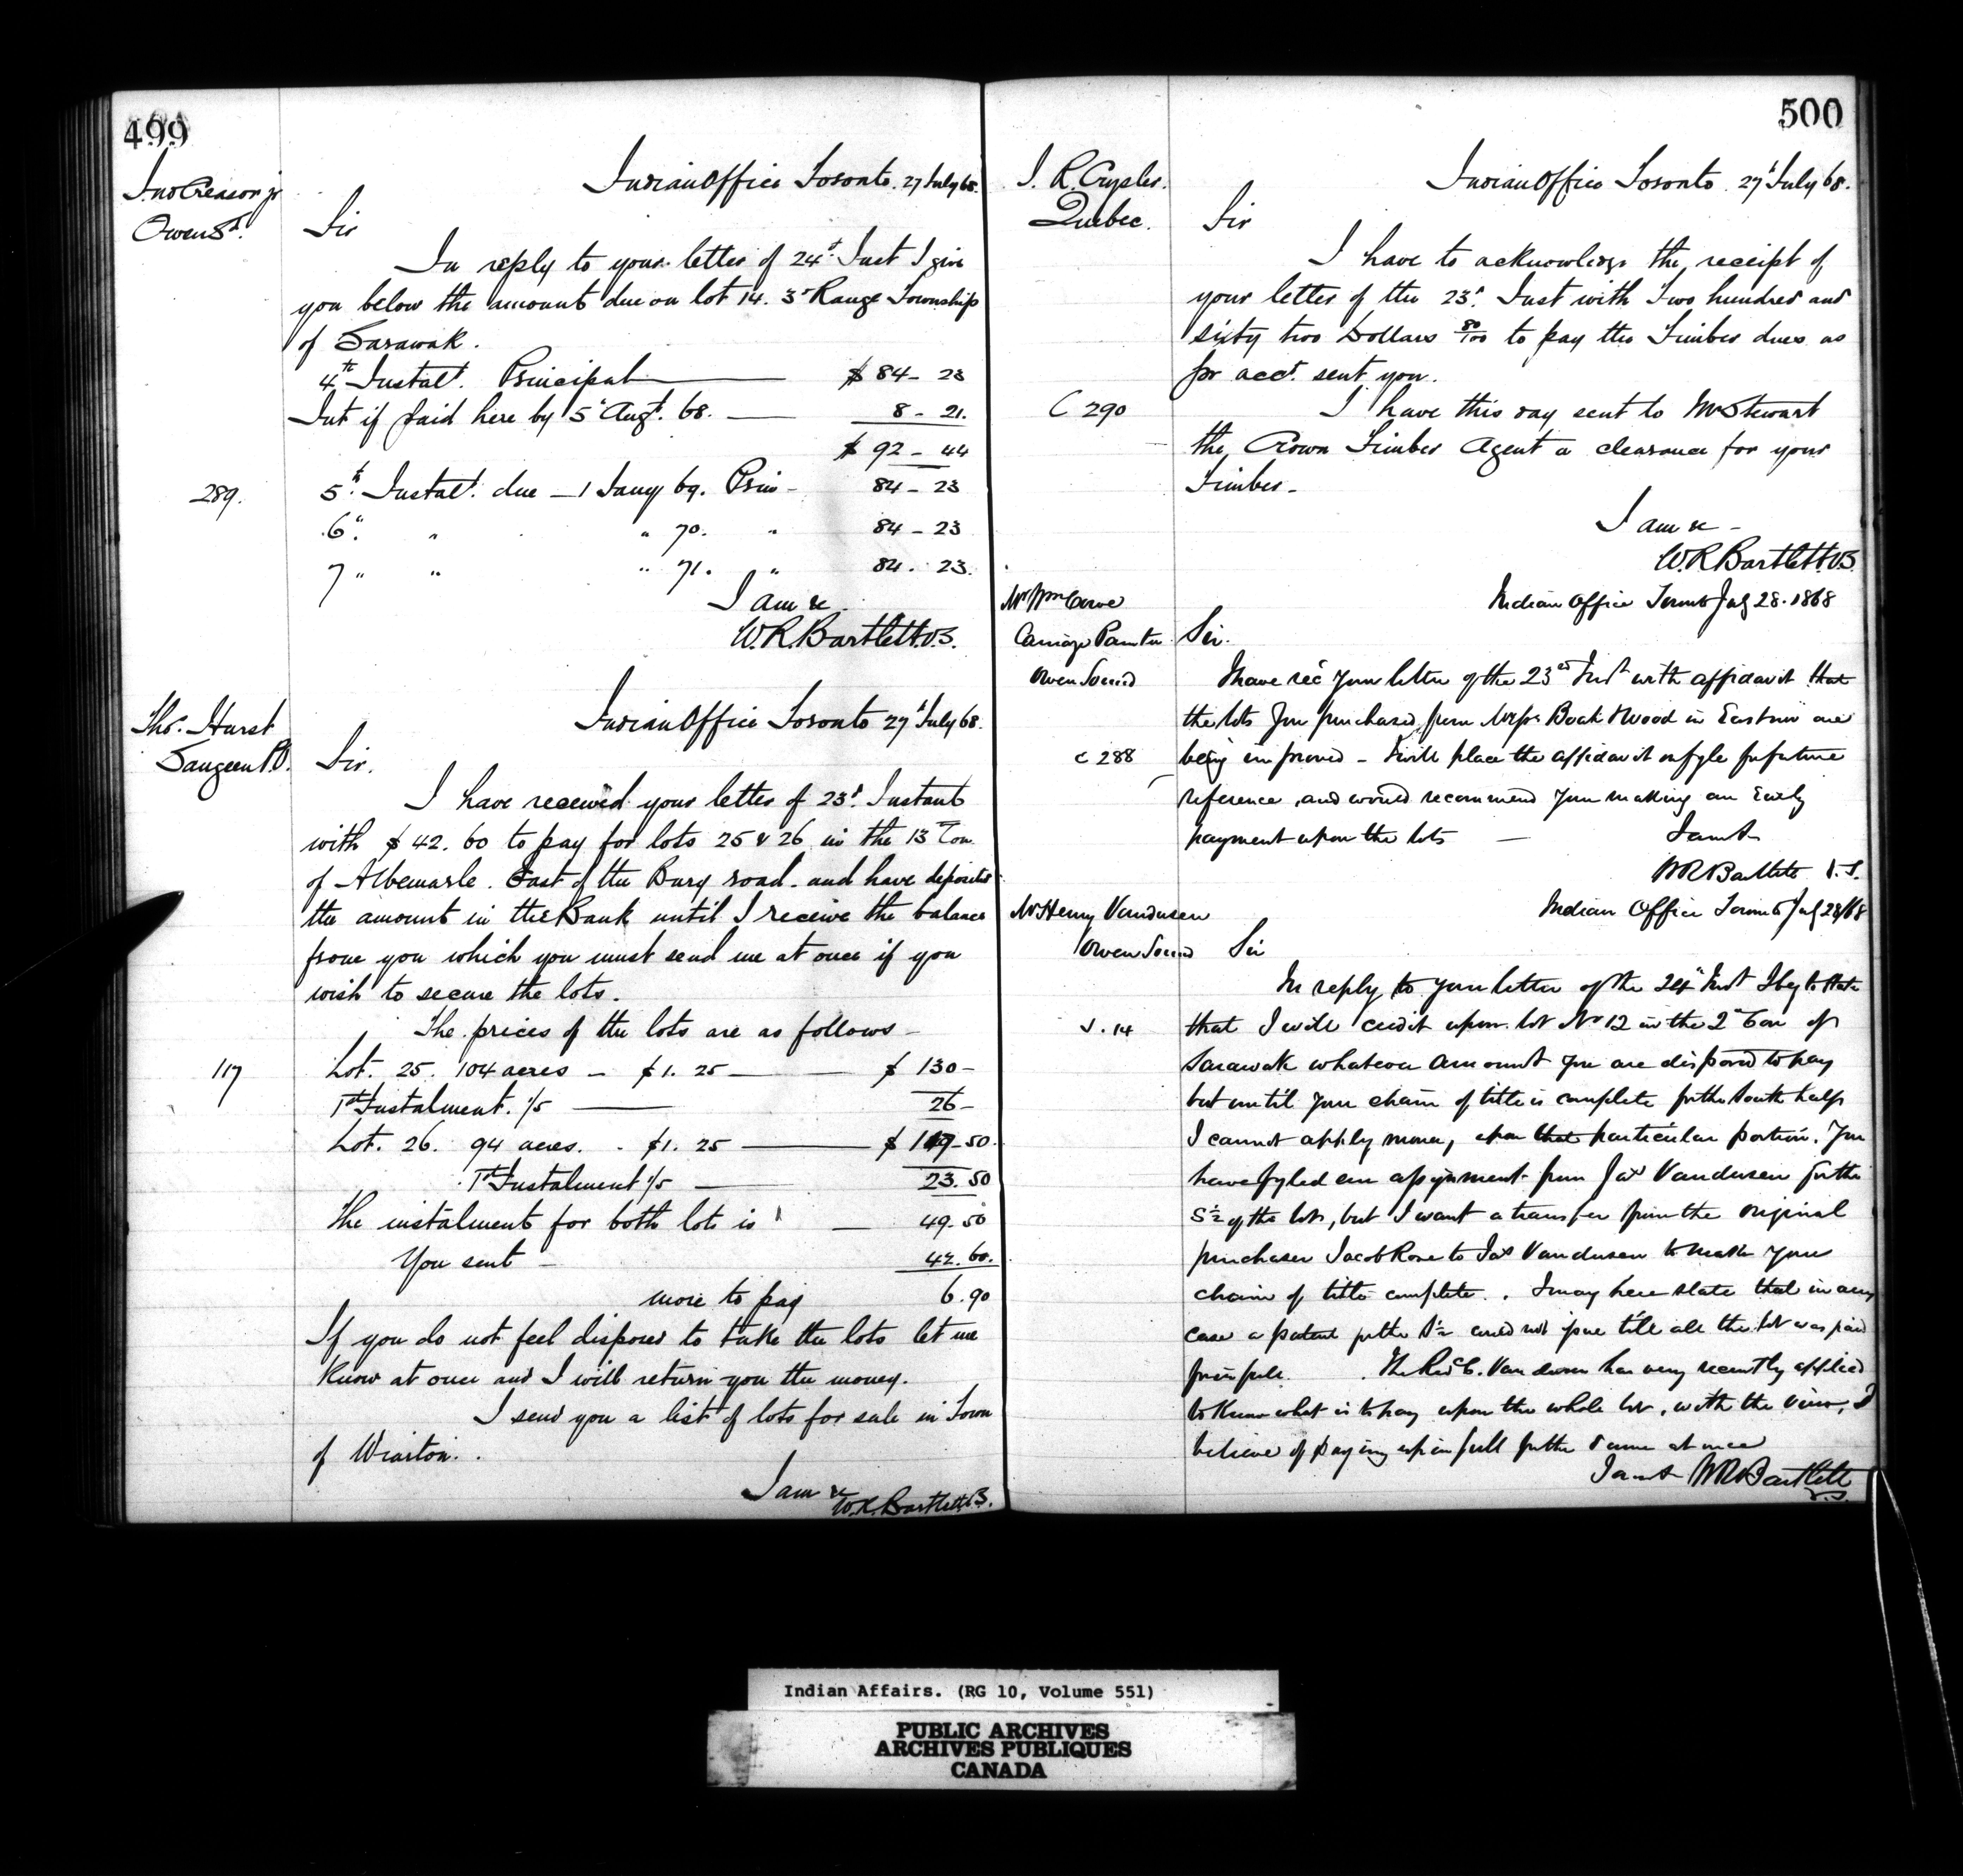 499
Jno Creasor jr
Owen Sd.
Indian Office Toronto. 27 July 68.
Sir
In reply to your letter of 24t. Inst I give
you below the amount due on lot 14. 3r Range Township
of Sarawak.
4th Instalt. Principal $ 84 - 23
Int if paid here by 5t Augt. 68. 8 - 21.
$ 92 - 44
289.
5th. Instalt. due - 1 Jany 69. Prin - 84 - 23
6". " " 70. " 84 - 23
7 " " " 71. " 84. 23.
I am &c.
W. R. Bartlett. V.S.
Thos. Hurst
Saugeen P.O.
Indian Office Toronto 27t July 68.
Sir.
I have received your letter of 23d. Instant
with $ 42. 60 to pay for lots 25 & 26 in the 13th Con
of Albemarle. East of the Bury road. and have deposited
the amount in the Bank until I receive the balance
from you which you must send me at once if you
wish to secure the lots.
The prices of the lots are as follows -
117
Lot. 25. 104 acres - $1. 25 $ 130 -
1st Instalment. 1/5 26 -
Lot. 26. 94 acres. - $1. 25 $ 117 - 50.
1st Instalment 1/5 23. 50
The instalments for both lots is - 49. 50
You sent - 42. 60.
more to pay 6. 90
If you do not feel disposed to take the lots let me
know at once and I will return you the money.
I send you a list of lots for sale in Town
of Wiarton.
I am &c
W. R. Bartlett V.S.
500
J. R. Crysler.
Quebec.
Indian Office Toronto. 27t July 68.
Sir
I have to acknowledge the receipt of
your letter of the 23d. Inst with Two hundred and
sixty two Dollars 80/100 to pay the Timber dues as
pr acct. sent you.
C 290
I have this day sent to Mr Stewart
the Crown Timber Agent a clearance for your
Timber -
I am &c -
W. R Bartlett. V.S.
Mr Wm
Carriage Painter
Owen Sound
Indian Office Toronto July 28. 1868
Sir.
I have recd your letter of the 23rd Inst with affidavit that
the lots you purchased from Messrs Boak & Wood in Eastnor are
c 288
being improved - I will place the affidavit on fyle for future
reference, and would recommend your making an early
payment upon the lots - I am &
W R Bartlett V. S.
Mr Henry Vandusen
Owen Sound
Indian Office Toronto July 28/68
Sir
In reply to your letter of the 24th Inst I beg to state
V. 14
that I will credit upon lot No 12 in the 2d Con of
Sarawak whatever amount you are disposed to pay
but until your chain of title is complete for the South half
I cannot apply money upon that particular portion. You
have fyled an assignment from Jas Vandusen for the
S 1/2 of the lot, but I want a transfer from the original
purchaser Jacob Rose to Jas Vandusen to make your
chain of title complete. I may here state that in any
case a patent for the S 1/2 could not issue till all the lot was paid
for in full. The Revd C. Vandusen has very recently applied
to know what is to pay upon the whole lot, with the view, I
believe of paying up in full for the same at once
I am & W R Bartlett
V.S.
Indian Affairs. (RG 10, Volume 551)
PUBLIC ARCHIVES
ARCHIVES PUBLIQUES
CANADA